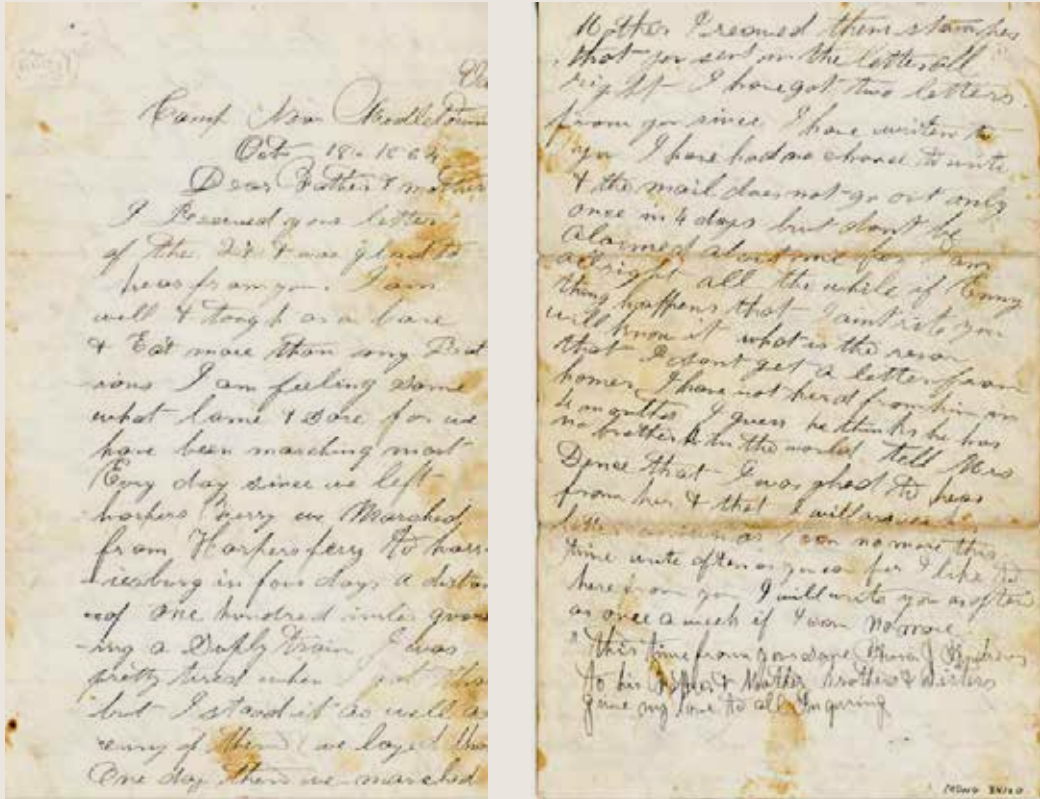 Camp Near Middletown
Oct 18. 1864
Dear Father & mother
I Received your letter
of the & was glad to
hear from you. I am
well & tough as a bare
& Eat more than my Rat
ions I am feeling some
what lame & sore for we
have been marching most
Evry day since we left
harpers ferry we Marched
from Harpers ferry to harr
isburg in four days a distan
of one hundred miles guar
ing a Suply train I was
pretty tired when I got
but I stood it as well a
enny of them we layed
One day then we marched
Mother I receved them stamps
that you sent in the letter all
right I have got two letters
from you since I have written to
you I have had no chance to write
& the mail does not go out only
once in 4 days but dont be
alarmed about me for I am
all right all the while if Enny
thing happens that I aint rite you
will know it what is the reson
that I dont get a letter from
homer I have not herd from him in
4 months I guess he thinks he has
no brother in the world tell Mrs
that I was glad to hear
from her & that I will answer her
letter as soon as I can no more this
time write often as you can for I like to
here from you I will write you as often
as once a week if I can No more
this time from your
to his Father & Mother brothers & sisters
give my love to all Inquiring